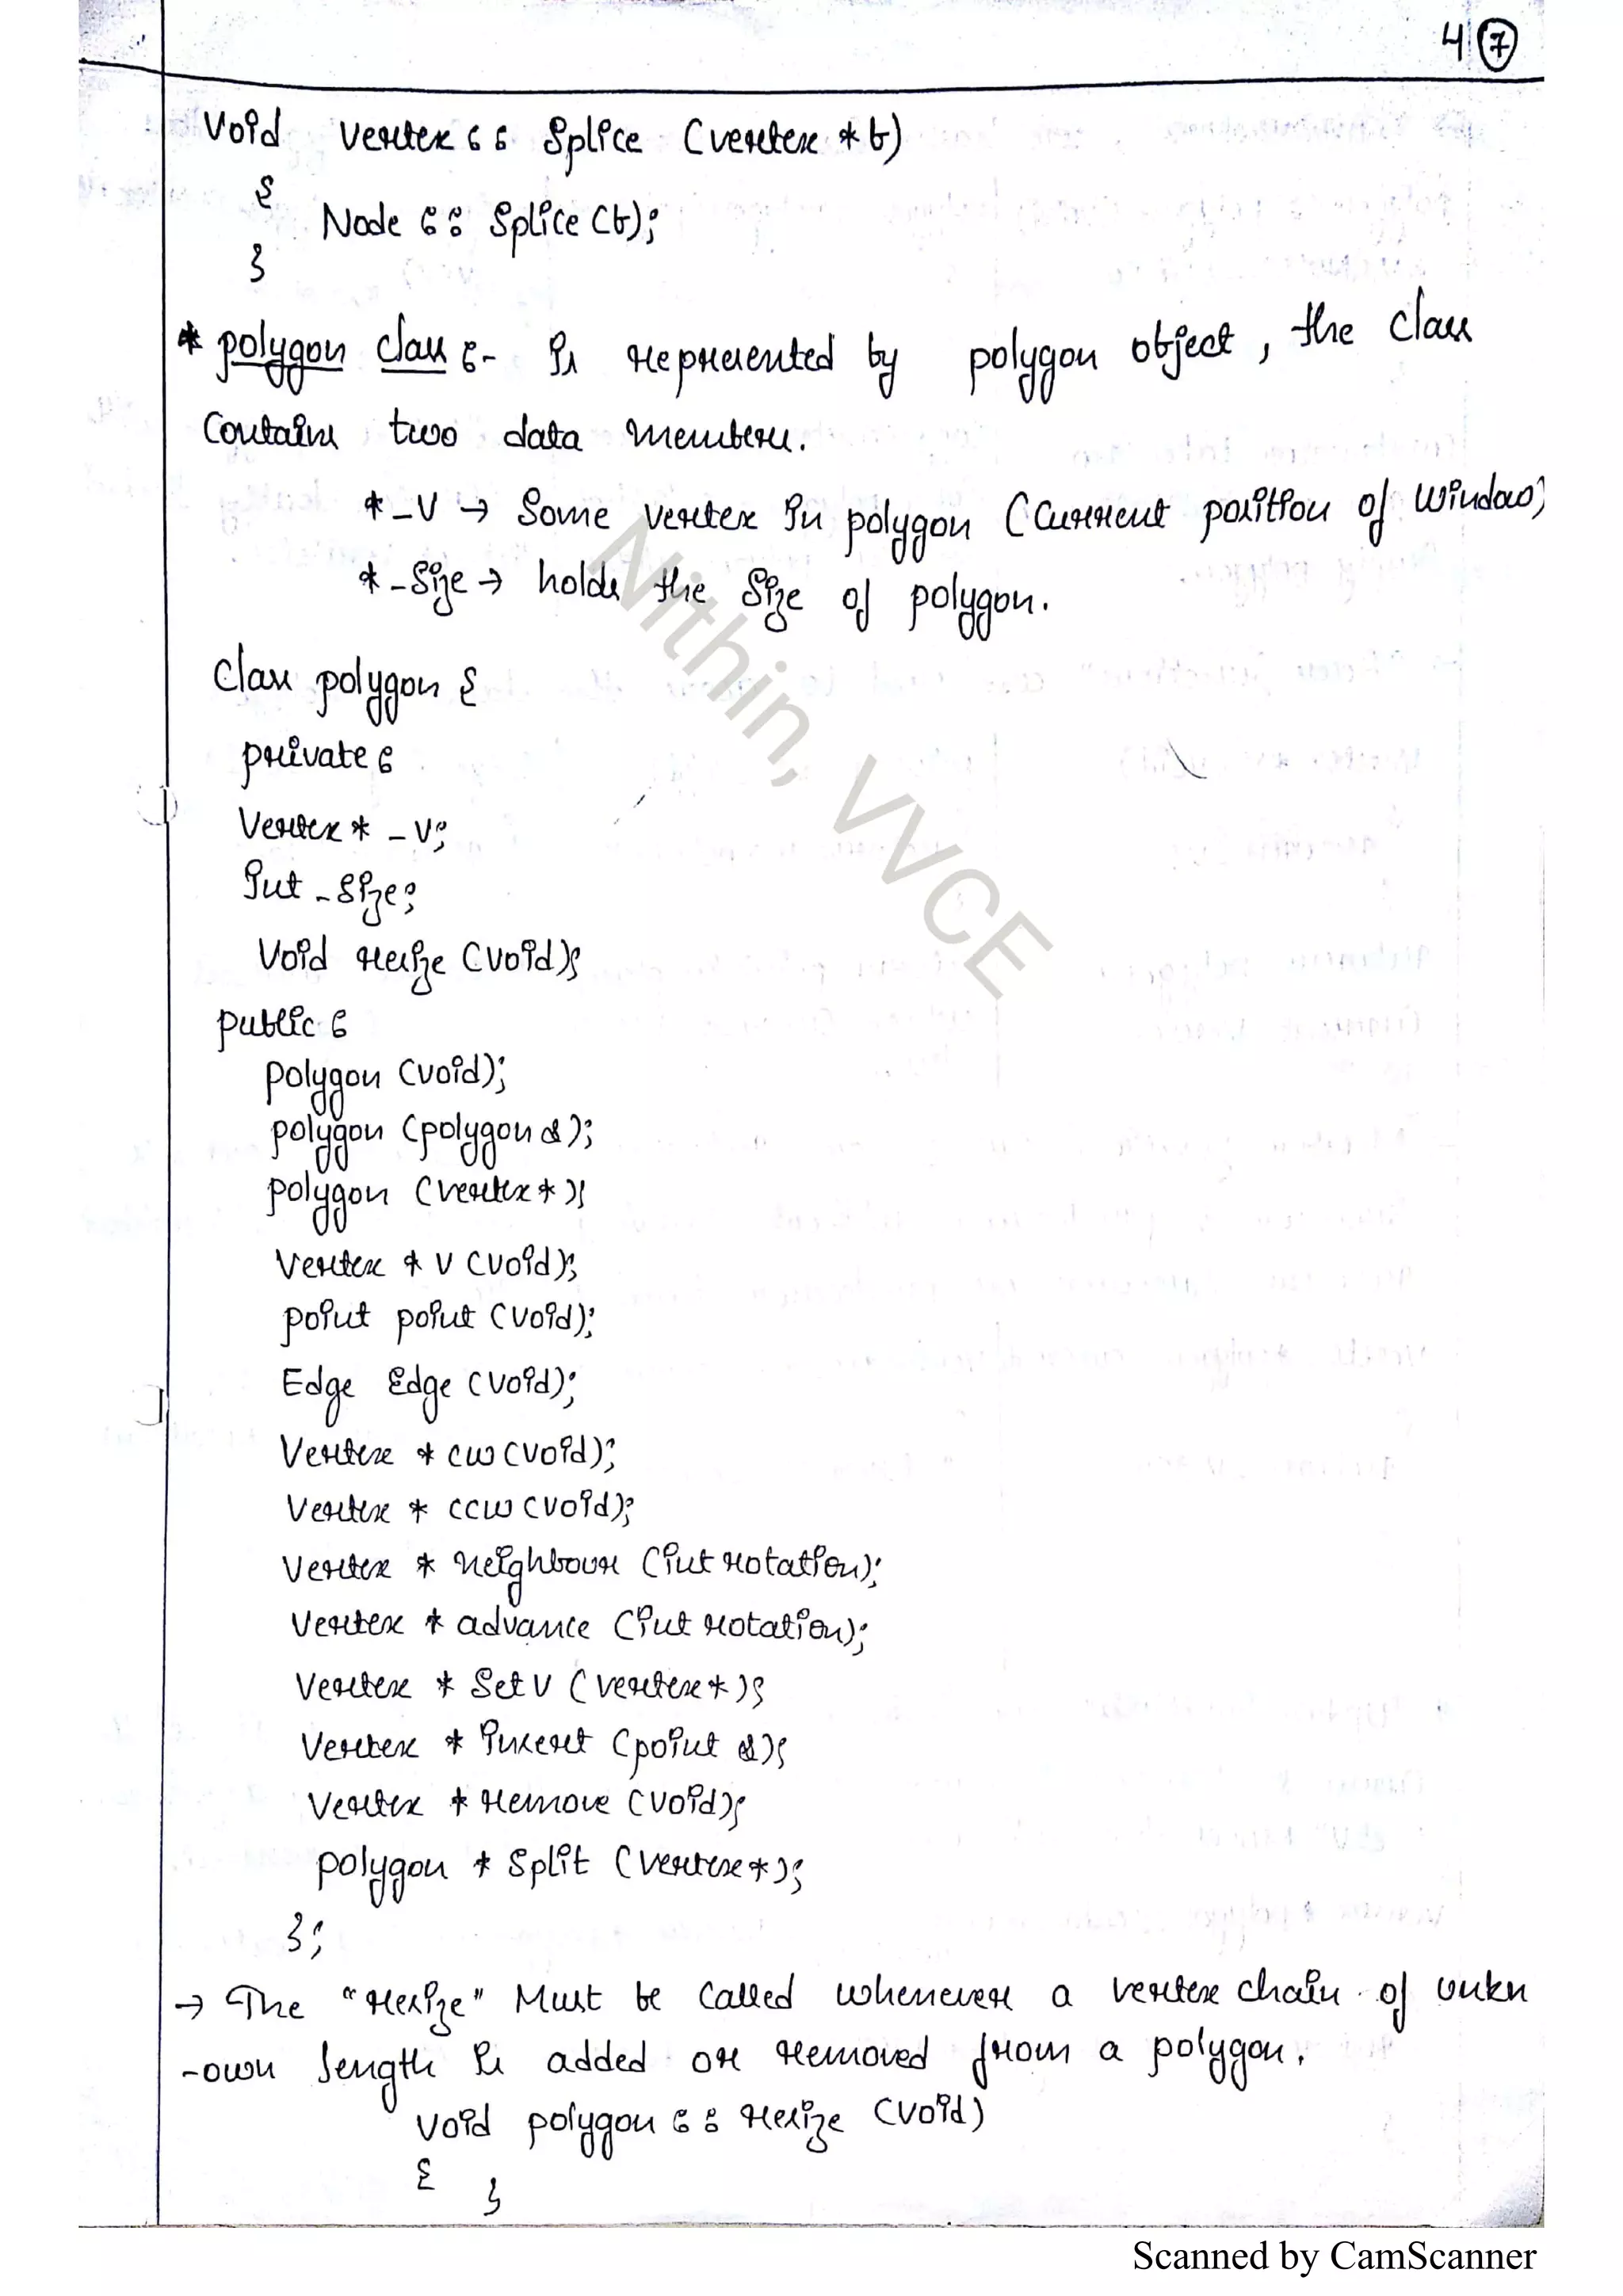 4 7
void vertex :: splice (vertex *b)
{
Node :: splice (b);
}
* polygon class :- is represented by polygon object, the class
contains two data members.
* _v → some vertex in polygon (current position of window)
* _size → holds the size of polygon.
class polygon {
private :
vertex * _v;
int _size;
void resize (void);
public :
polygon (void);
polygon (polygon &);
polygon (vertex *);
vertex * v (void);
point point (void);
Edge Edge (void);
vertex * cw (void);
vertex * ccw (void);
vertex * neighbour (int rotation);
vertex * advance (int rotation);
vertex * setv (vertex *);
vertex * insert (point &);
vertex * remove (void);
polygon * split (vertex *);
};
→ The "resize" Must be called whenever a vertex chain of unkn
-own length is added or removed from a polygon.
void polygon :: resize (void)
{ }
Nithin, VVCE
Scanned by CamScanner